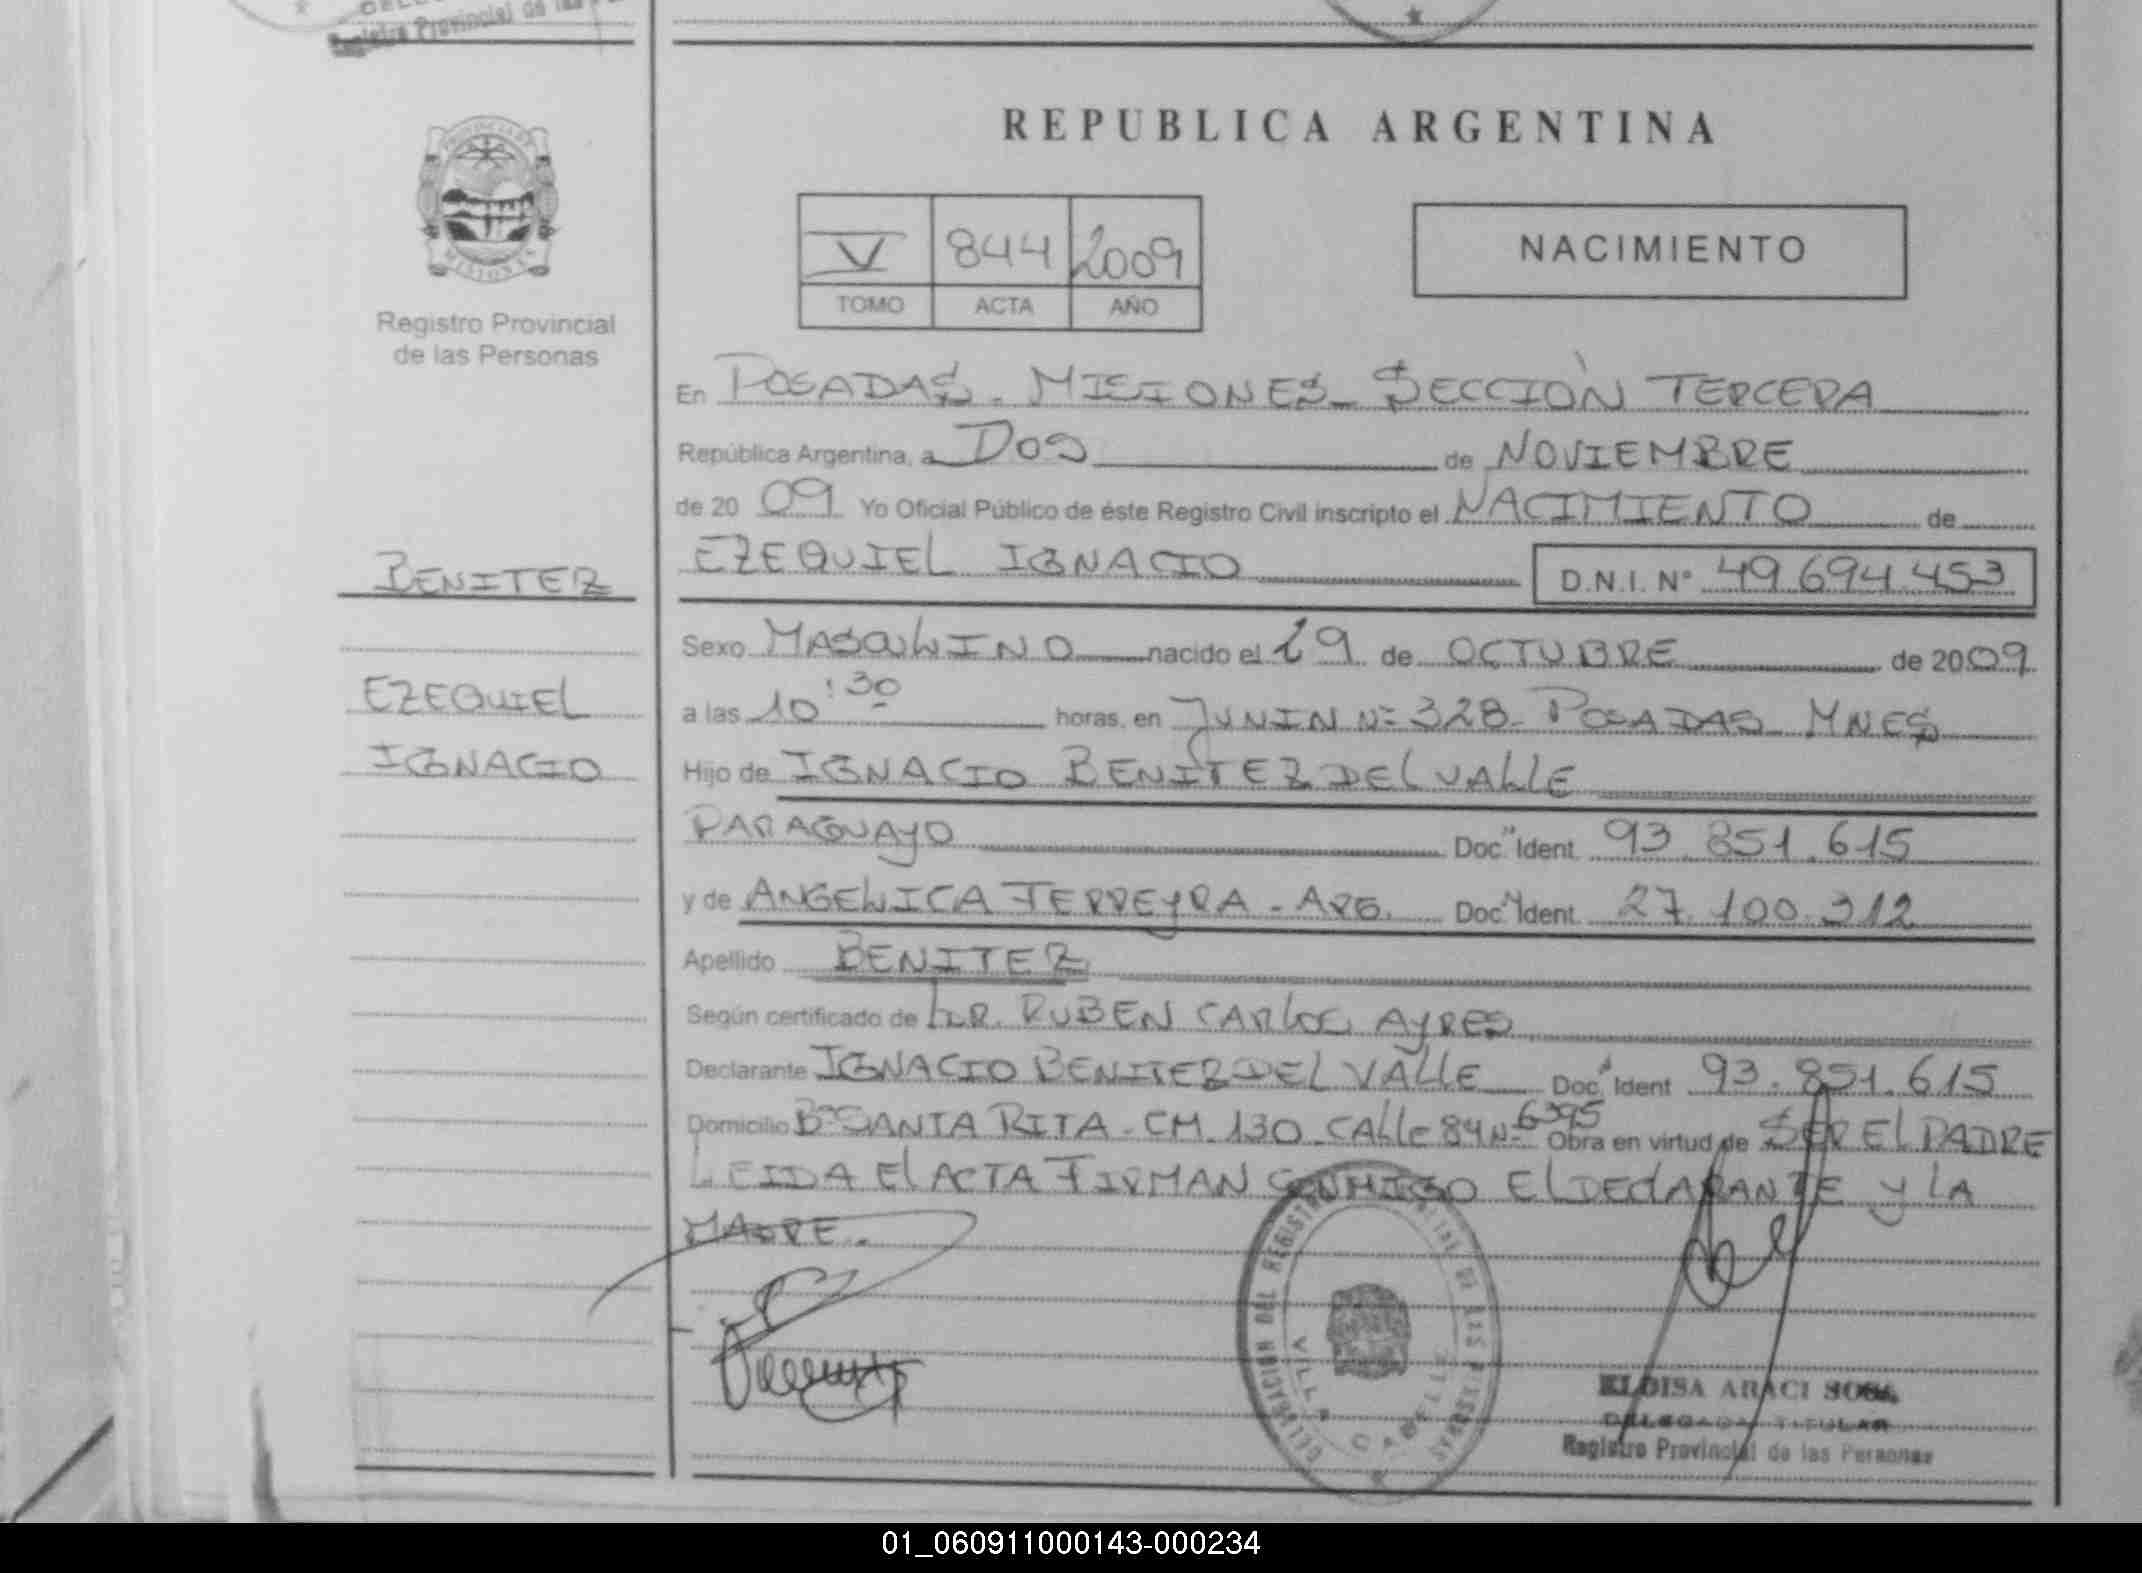 Registro Provincial de las
REPUBLICA ARGENTINA
PROVINCIA DE
MISIONES
V 844 2009
TOMO ACTA AÑO
NACIMIENTO
Registro Provincial
de las Personas
En POSADAS - MISIONES - SECCIÓN TERCERA
República Argentina, a DOS de NOVIEMBRE
de 20 09 Yo Oficial Público de éste Registro Civil inscripto el NACIMIENTO de
BENITEZ
EZEQUIEL IGNACIO D.N.I. N° 49.694.453
Sexo MASCULINO nacido el 29 de OCTUBRE de 2009
EZEQUIEL
a las 10:30 horas, en JUNIN Nº 328 - POSADAS MNES
IGNACIO
Hijo de IGNACIO BENITEZ DEL VALLE
PARAGUAYO Doc. Ident 93.851.615
y de ANGELICA FERREYRA - ARG. Doc. Ident 27.100.312
Apellido BENITEZ
Según certificado de DR. RUBEN CARLOS AYRES
Declarante IGNACIO BENITEZ DEL VALLE Doc. Ident 93.851.615
Domicilio Bº SANTA RITA - CH. 130 - CALLE 84 Nº 6395 Obra en virtud de SER EL PADRE
LEIDA El ACTA FIRMAN CONMIGO El DECLARANTE y LA
MADRE.
DELEGACION DEL REGISTRO PROVINCIAL DE LAS PERSONAS
VILLA CABELLO
ELOISA ARACI SOSA
DELEGADA TITULAR
Registro Provincial de las Personas
01_060911000143-000234